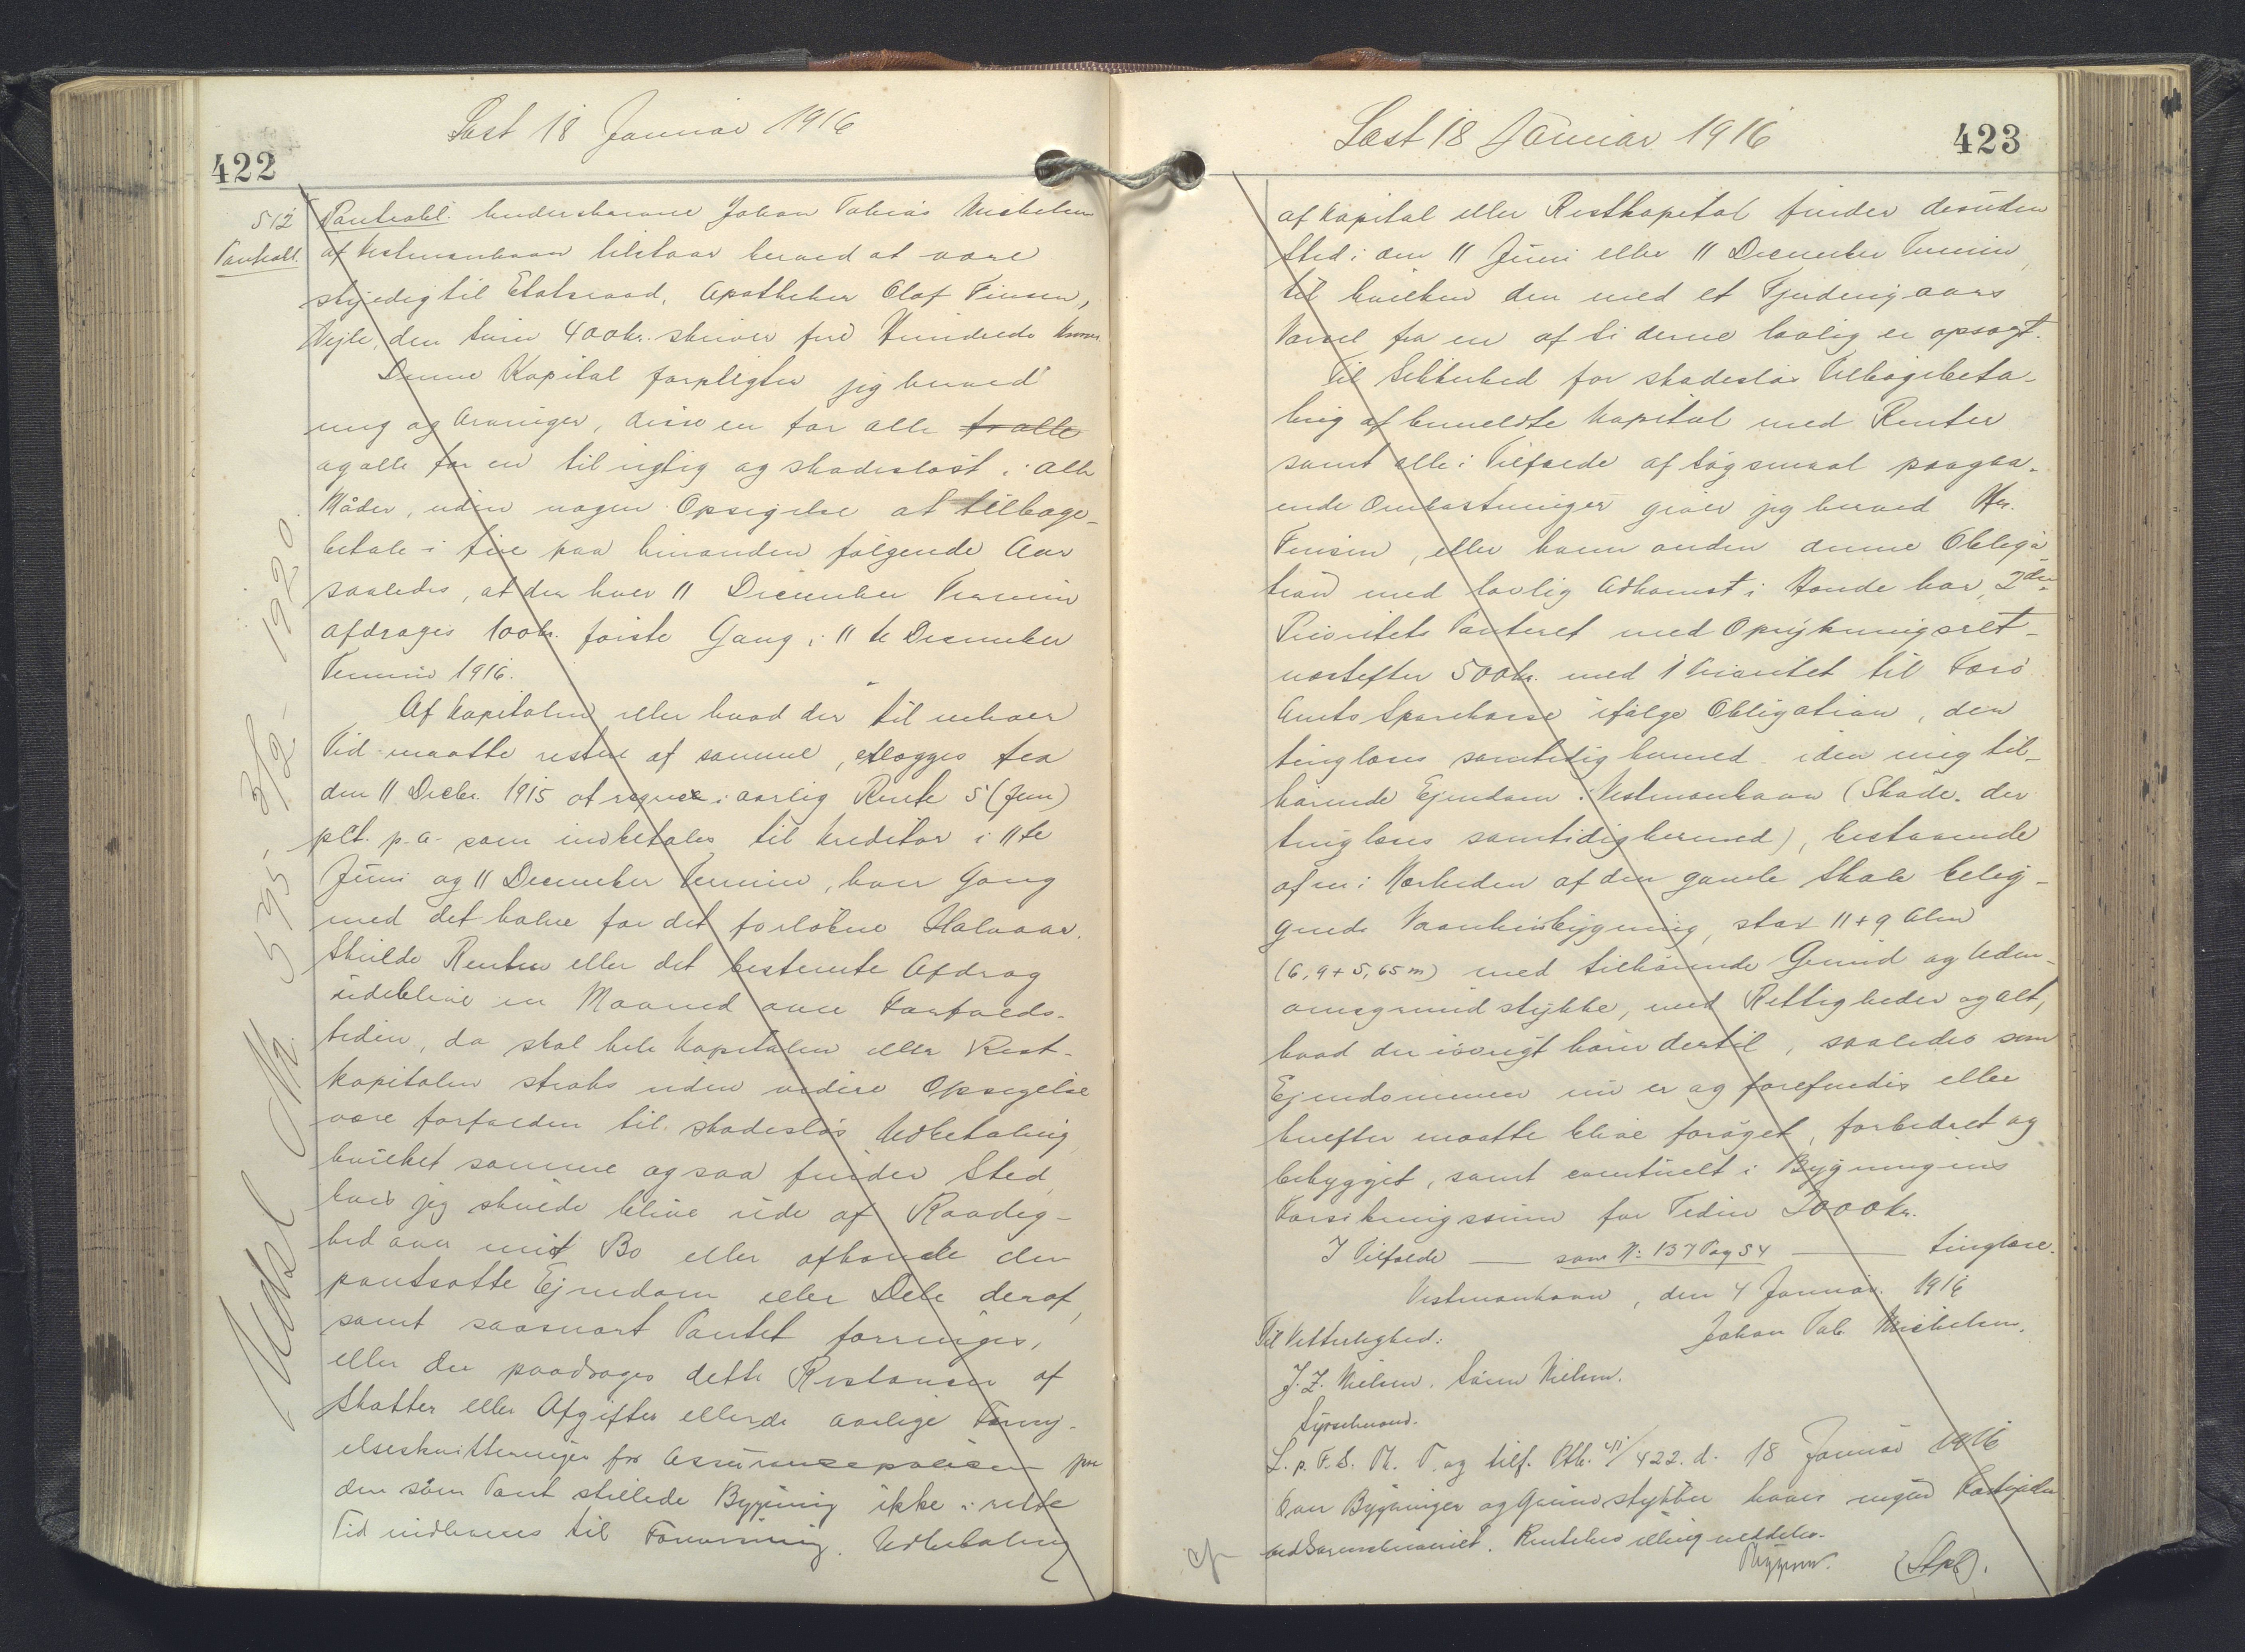 Læst 18 Januar 1916
422
512
Panteobl.
Panteobl. Undertegnede Johan Tobias Michelsen
af Vestmanhavn tilstaar herved at være
skyldig til Etatsraad, Apotheker Olaf Finsen,
Vejle, den Sum 400kr. skriver fire Hundrede Kroner.
Denne Kapital forpligter jeg herved
mig og Arvinger, disse en for alle fr alle
og alle for en til rigtig og skadesløst i alle
Måder, uden nogen Opsigelse at tilbage-
betale i fire paa hinanden følgende Aar
saaledes, at der hver 11 December Termin
afdrages 100kr. første Gang i 11te December
Termin 1916.
Af Kapitalen eller hvad der til enhver
Tid maatte restere af samme, erlægges fra
den 11 Decbr. 1915 at regne i aarlig Rente 5 (fem)
pCt. p. a. som indbetales til Kreditor i 11te
Juni og 11 December Termin, hver Gang
med det halve for det forløbne Halvaar.
Skulde Renten eller det bestemte Afdrag
udeblive en Maaned over Forfalds-
tiden, da skal hele Kapitalen eller Rest-
kapitalen straks uden videre Opsigelse
være forfalden til skadesløs Udbetaling,
hvilket samme ogsaa finder Sted,
hvis jeg skulde blive ude af Raadig-
hed over mit Bo eller afhænde den
pantsatte Ejendom eller Dele deraf,
samt saasnart Pantet forringes,
eller der paadrages dette Restancer af
Skatter eller Afgifter eller de aarlige Forny-
elseskvitteringer for Assurancepolicen paa
den som Pant stillede Bygning ikke i rette
Tid indleveres til Forevisning. Udbetaling
Udsl. Nr. 595 - 3/2 - 1920.
Læst 18 Januar 1916
423
af Kapital eller Restkapital finder desuden
Sted i den 11 Juni eller 11 December Termin,
til hvilken den med et Fjerdingaars
Varsel fra en af Siderne lovlig er opsagt.
Til Sikkerhed for skadesløs Tilbagebeta-
ling af bemeldte Kapital med Renter
samt alle i Tilfælde af Søgsmaal paagaa-
ende Omkostninger giver jeg herved Hr.
Finsen, eller hvem anden denne Obliga-
tion med lovlig Adkomst i Hænde har, 2den
Prioritets Panteret med Oprykningsret
næstefter 500kr. med 1 Prioritet til Færø
Amts Sparekasse ifølge Obligation, der
tinglæses samtidig hermed i den mig til-
hørende Ejendom i Vestmanhavn (Skøde der
tinglæses samtidig hermed), bestaaende
af en i Nærheden af den gamle Skole belig-
gende Vaaningsbygning, stor 11 + 9 Alen
(6,9 + 5,65 m) med tilhørende Grund og Uden-
omsgrundstykke, med Rettigheder og alt,
hvad der iøvrigt hører dertil, saaledes som
Ejendommen nu er og forefindes eller
herefter maatte blive forøget, forbedret og
bebygget, samt eventuelt i Bygningens
Forsikringssum for Tiden 2000kr.
I Tilfælde — som No 137 Pag 54 — tinglæses.
Vestmanhavn, den 4 Januar 1916
Til Vitterlighed: Johan Tob. Michelsen.
J. Z. Nielsen. Søren Nielsen.
Sysselmand.
L. p. F. S. Th. T. og tilf. Ptb. 422. d. 18 Januar 1916
Over Bygninger og Grundstykker haves ingen Fortegnelse
ved Sorenskriveriet.
(Stpl).